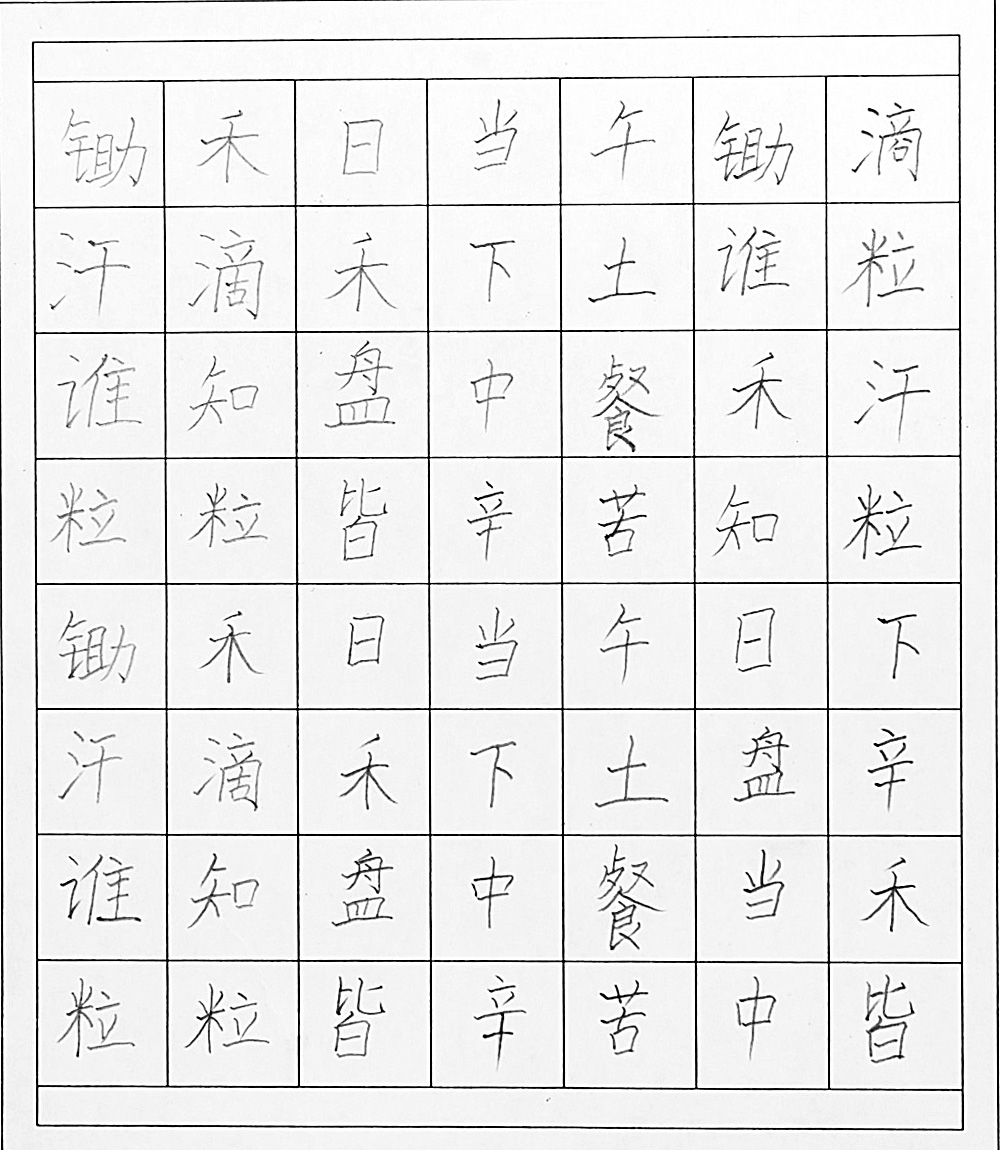 锄禾日当午锄滴
汗滴禾下土谁粒
谁知盘中餐禾汗
粒粒皆辛苦知粒
锄禾日当午日下
汗滴禾下土盘辛
谁知盘中餐当禾
粒粒皆辛苦中皆